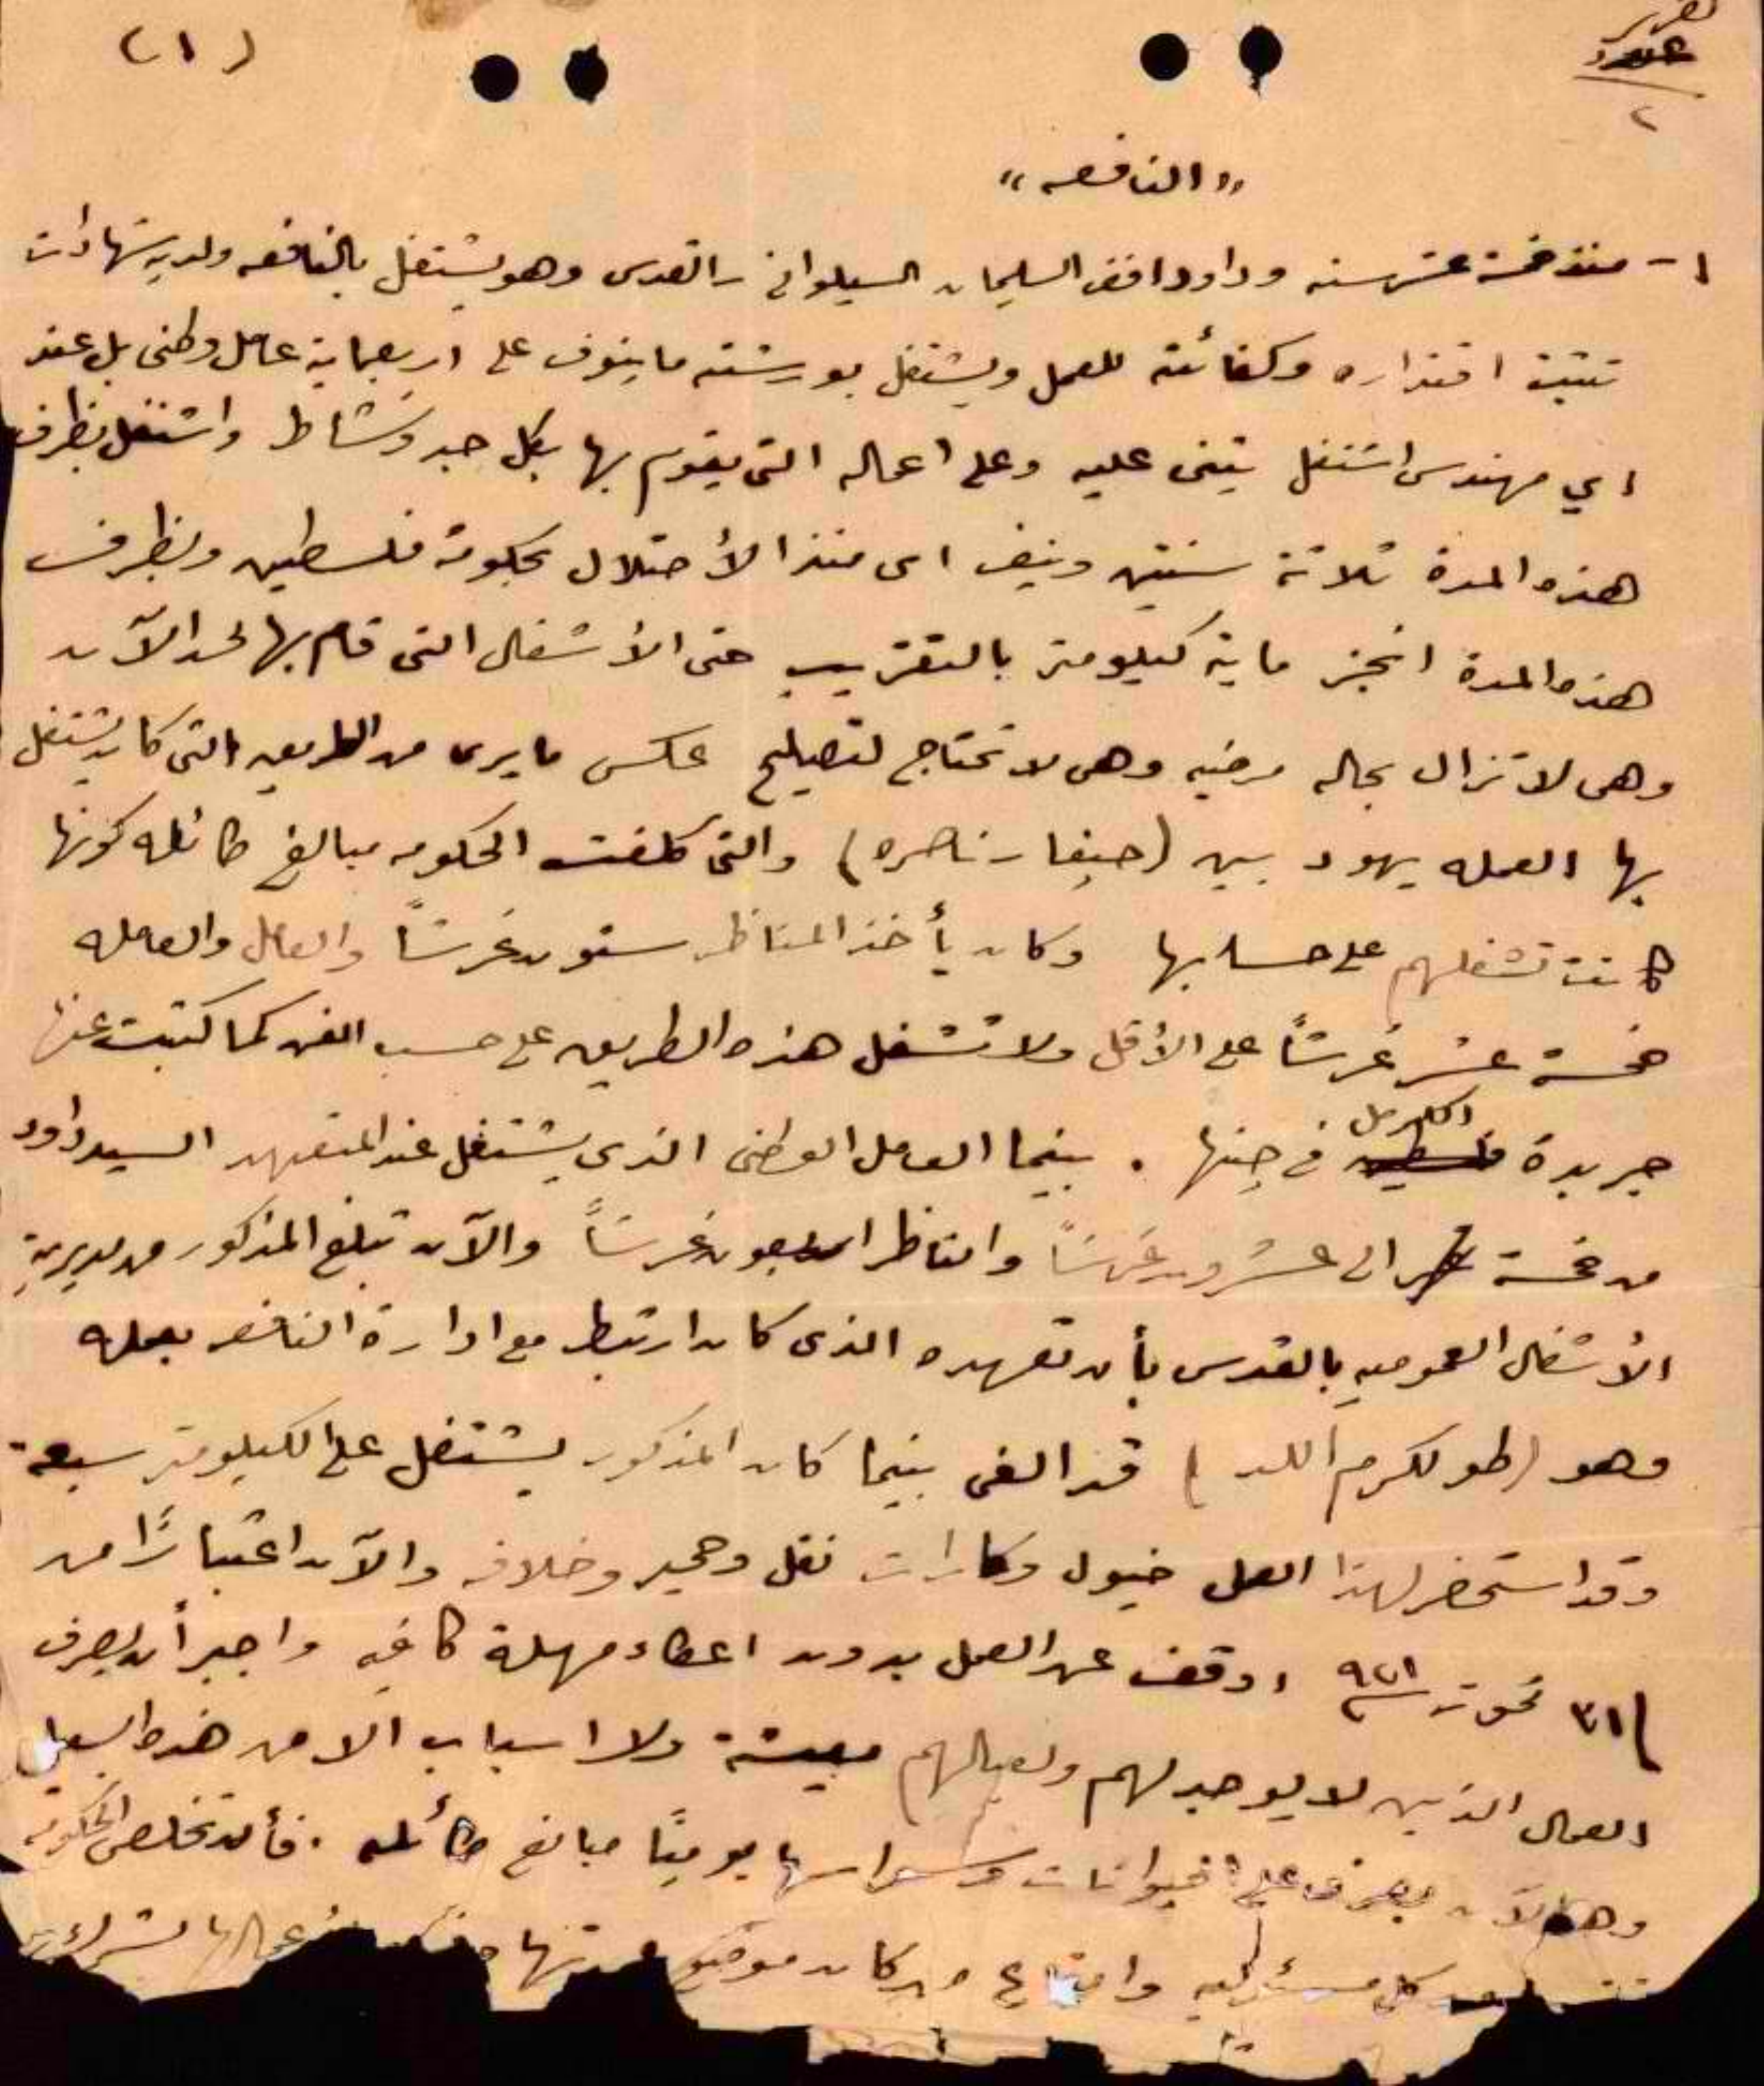 (١)
تقرير
٢
"النافعه"
١- منذ خمسة عشر سنه وداود افندي السليمان السيلواني - القدس وهو يشتغل بالنافعه ولديه شهادات
تثبت اقتداره وكفائته للعمل ويشتغل بورشته ما ينوف على اربعماية عامل وطني بل عند
اي مهندس اشتغل يثنى عليه وعلى اعماله التى يقوم بها بكل جد ونشاط واشتغل بظرف
هذه المدة ثلاثة سنين ونيف اى منذ الأحتلال بحكومة فلسطين وبظرف
هذه المدة انجز ماية كيلومتر بالتقريب حتى الأشغال التى قام بها لحد الآن
وهى لا تزال بحاله مرضيه وهى لا تحتاج لتصليح عكس ما يرى من الطريق التى كان يشتغل
بها العمله يهود بين (حيفا - ناصره) والتى كلفت الحكومه مبالغ طائله كونها
كانت تشغلهم على حسابها وكان يأخذ المناظر ستون غرشاً والعامل والعامله
خمسة عشر غرشاً على الأقل ولا تشغل هذه الطريق على حسب الفن كما كتبت عنها
جريدة الكرمل في حينها . بينما العامل الوطنى الذى يشتغل عند المتعهد السيد داود
من خمسة عشر الى عشرون غرشاً والناظر اربعون غرشاً والآن تبلغ المذكور من مديرية
الأشغال العموميه بالقدس بأن تعهده الذى كان ارتبط مع ادارة النافعه بعمله
وهو (طولكرم اللد) قد الغى بينما كان المذكور يشتغل على الكيلومتر سبعة
وقد استحضر لهذا العمل خيول وكارات نقل وحمير وخلافه والآن اعتباراً من
٣١ تموز سنة ٩٢١ اوقف عن العمل بدون اعطاء مهلة كافيه واجبر أن يصرف
العمال الذين لا يوجد لهم ولعيالهم معيشة ولا اسباب الا من هذا السبيل
وهو الآن يصرف على الحيوانات يومياً مبالغ طائله . فأن تخلص الحكومه
كل مسئوليه من كان موضع